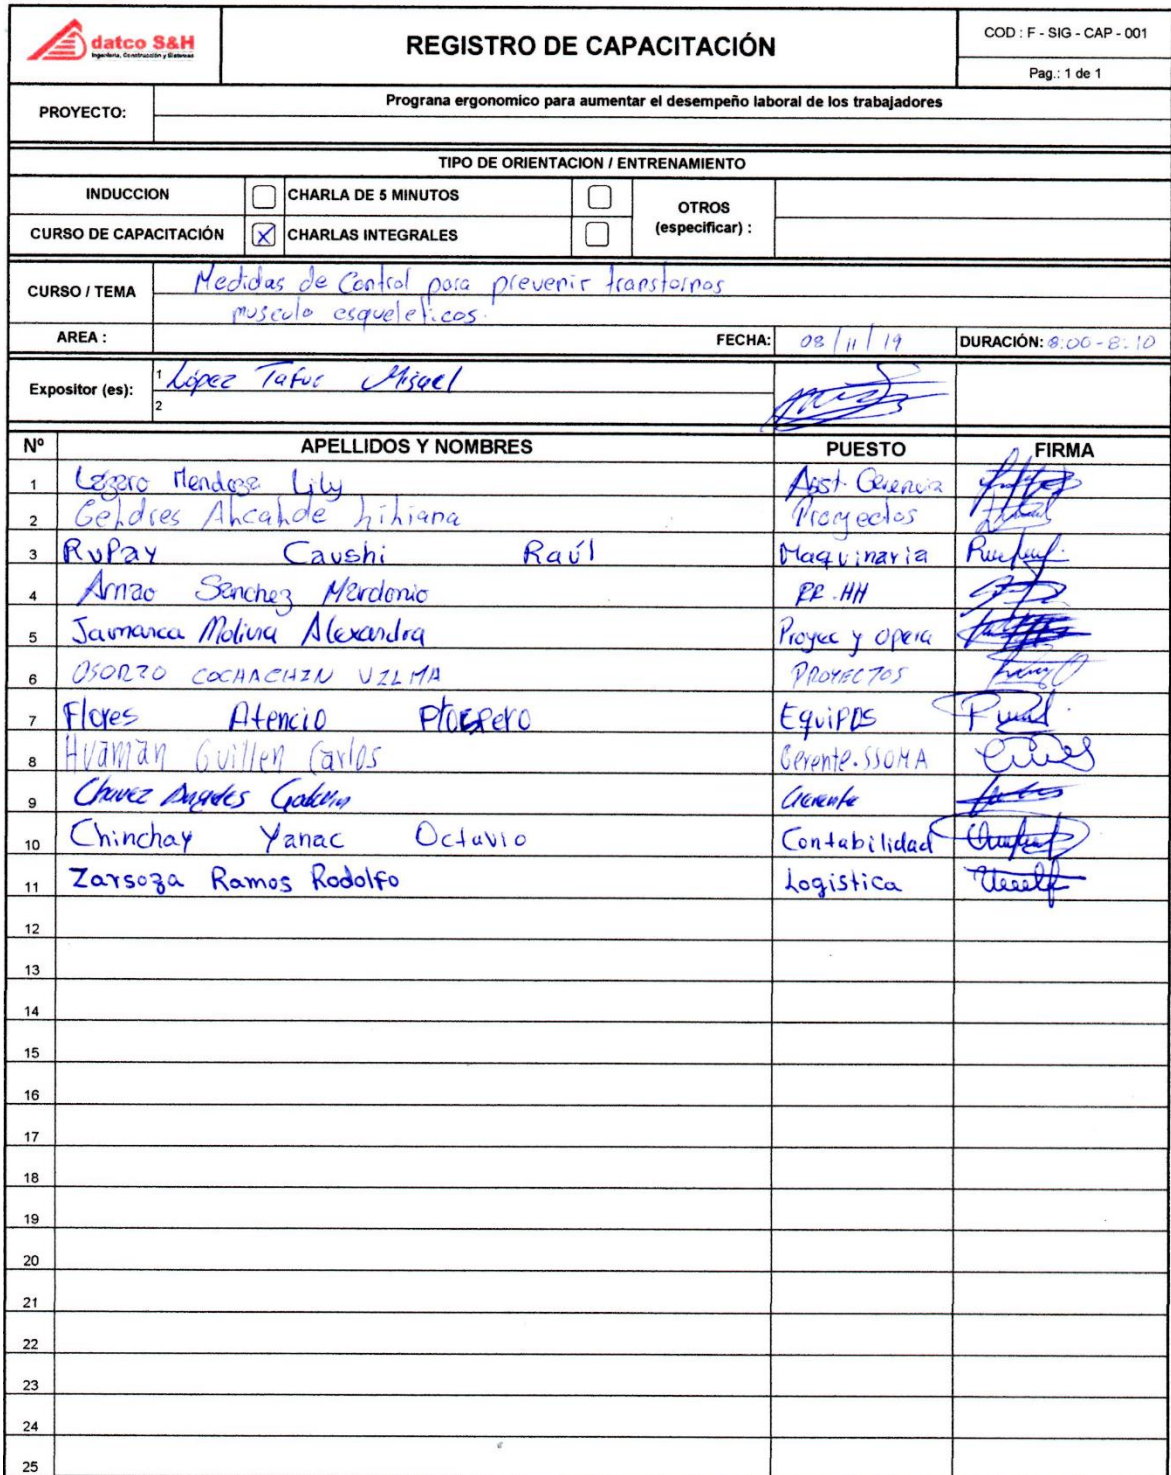 datco S&H
Ingeniería, Construcción y Sistemas
REGISTRO DE CAPACITACIÓN
COD : F - SIG - CAP - 001
Pag.: 1 de 1
PROYECTO:
Programa ergonomico para aumentar el desempeño laboral de los trabajadores
TIPO DE ORIENTACION / ENTRENAMIENTO
INDUCCION CHARLA DE 5 MINUTOS
OTROS
(especificar) :
CURSO DE CAPACITACIÓN X CHARLAS INTEGRALES
CURSO / TEMA
Medidas de Control para prevenir transtornos
musculo esqueleticos.
AREA : FECHA: 08/11/19 DURACIÓN: 8:00-8:10
Expositor (es):
1 López Tafur Misael
2
Nº APELLIDOS Y NOMBRES PUESTO FIRMA
1 Lázaro Mendoza Lily Asst. Gerencia
2 Gendres Ancande Liliana Proyectos
3 RuPay Caushi Raúl Maquinaria
4 Arnao Sanchez Mardonio RR.HH
5 Jaimanca Molina Alexandra Proyec y opera
6 OSORIO COCHACHIN VILMA PROYECTOS
7 Flores Atencio Prospero EquiPos
8 Huaman Guillen Carlos Gerente.SSOMA
9 Chavez Gerente
10 Chinchay Yanac Octavio Contabilidad
11 Zarsoza Ramos Rodolfo Logistica
12
13
14
15
16
17
18
19
20
21
22
23
24
25